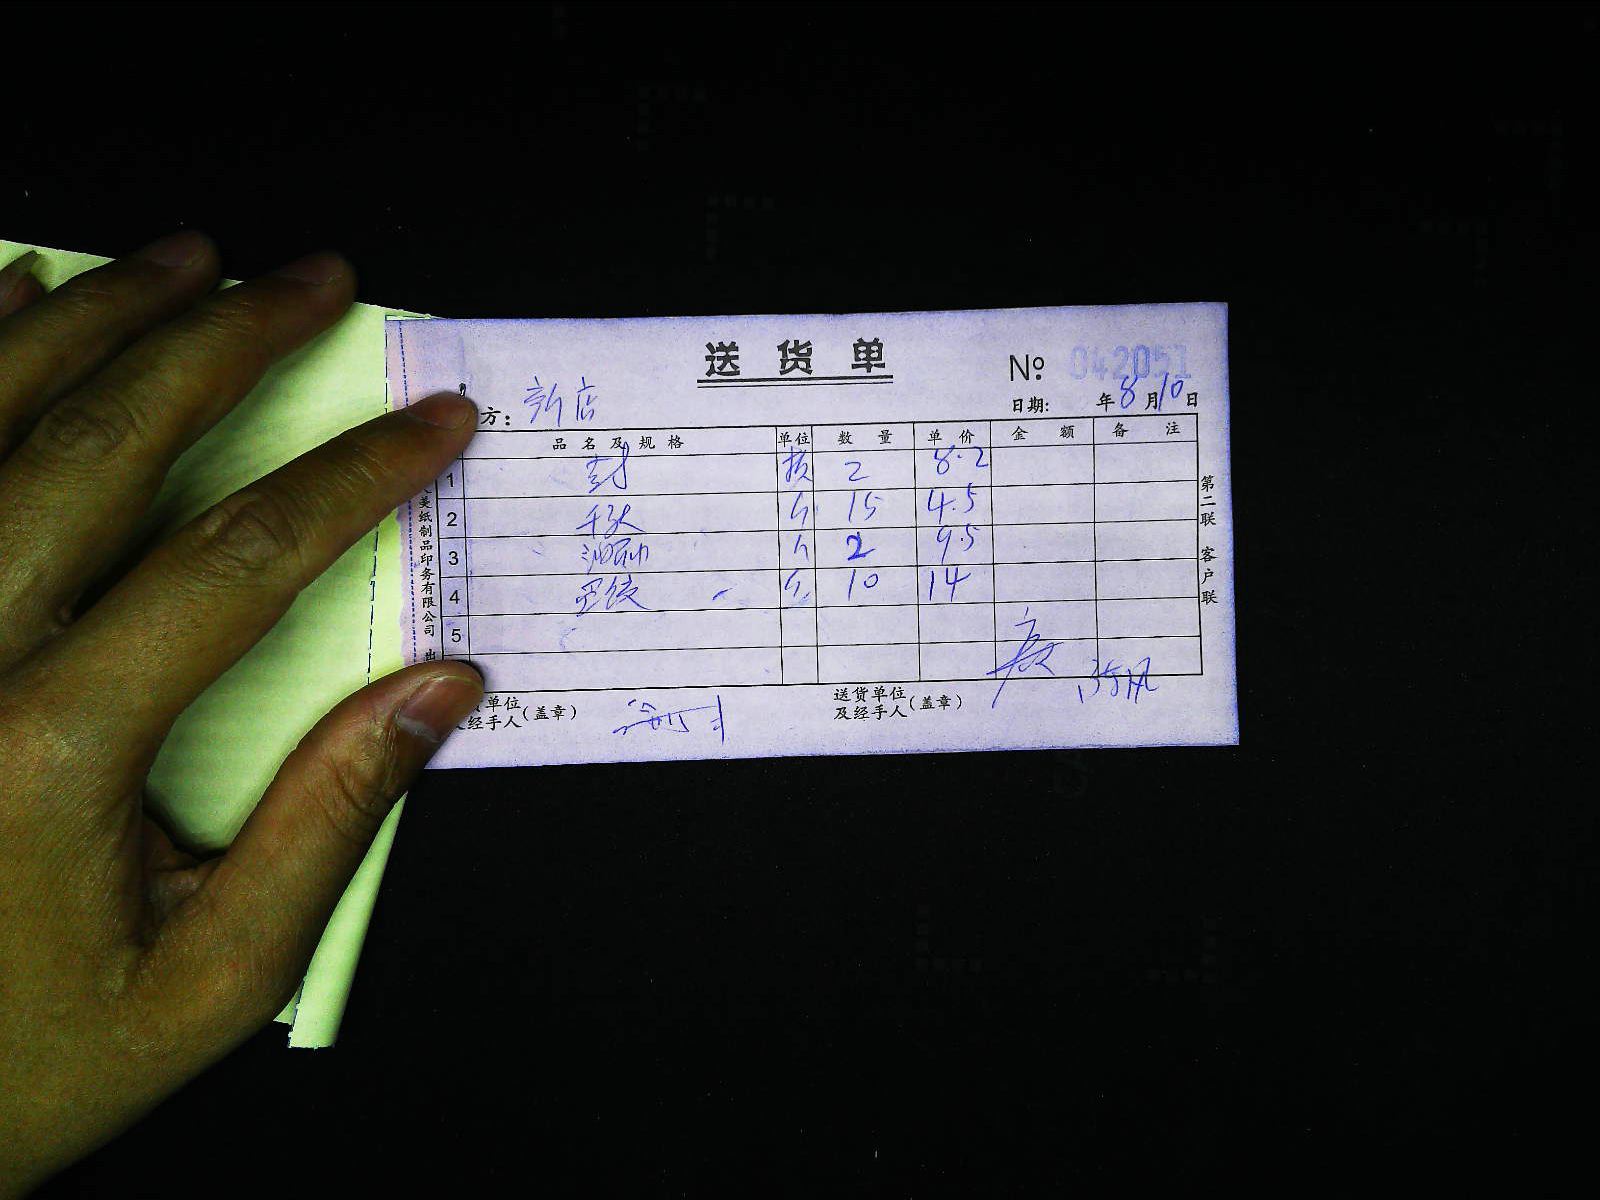 送货单
№ 042051
方： 新店
日期： 年8月10日
品名及规格 单位 数量 单价 金额 备注
1 2 8.2
2 千张 斤 15 4.5
3 斤 2 9.5
4 斤 10 14
5
单位
经手人（盖章）
送货单位
及经手人（盖章）
第二联 客户联
美纸制品印务有限公司 出